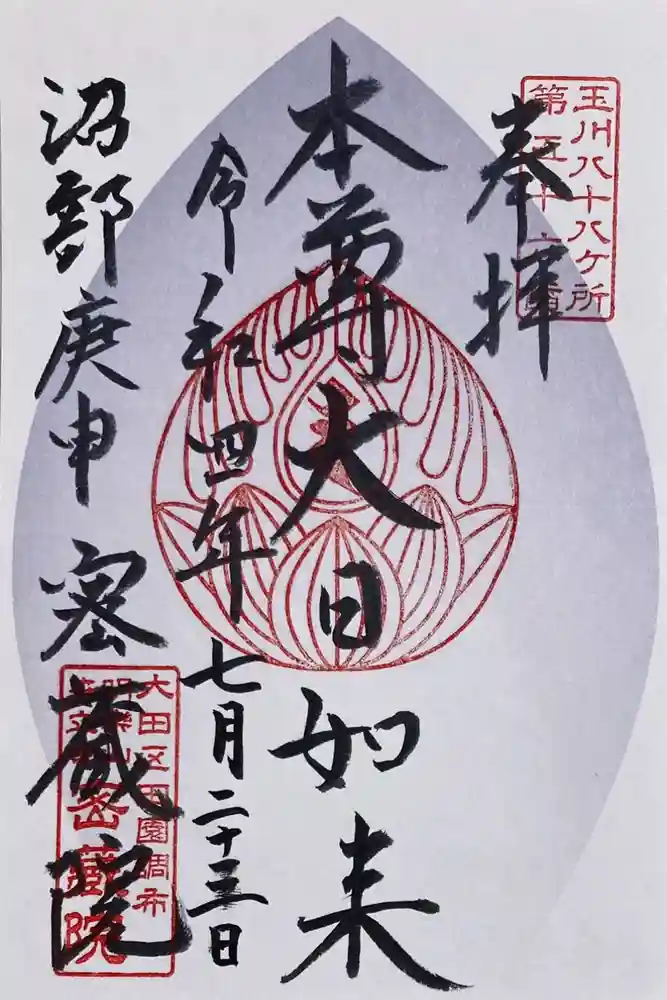 玉川八十八ヶ所
奉拝
本尊大日如来
令和四年七月二十三日
沼部庚申
密蔵院
大田区田園調布
密蔵院